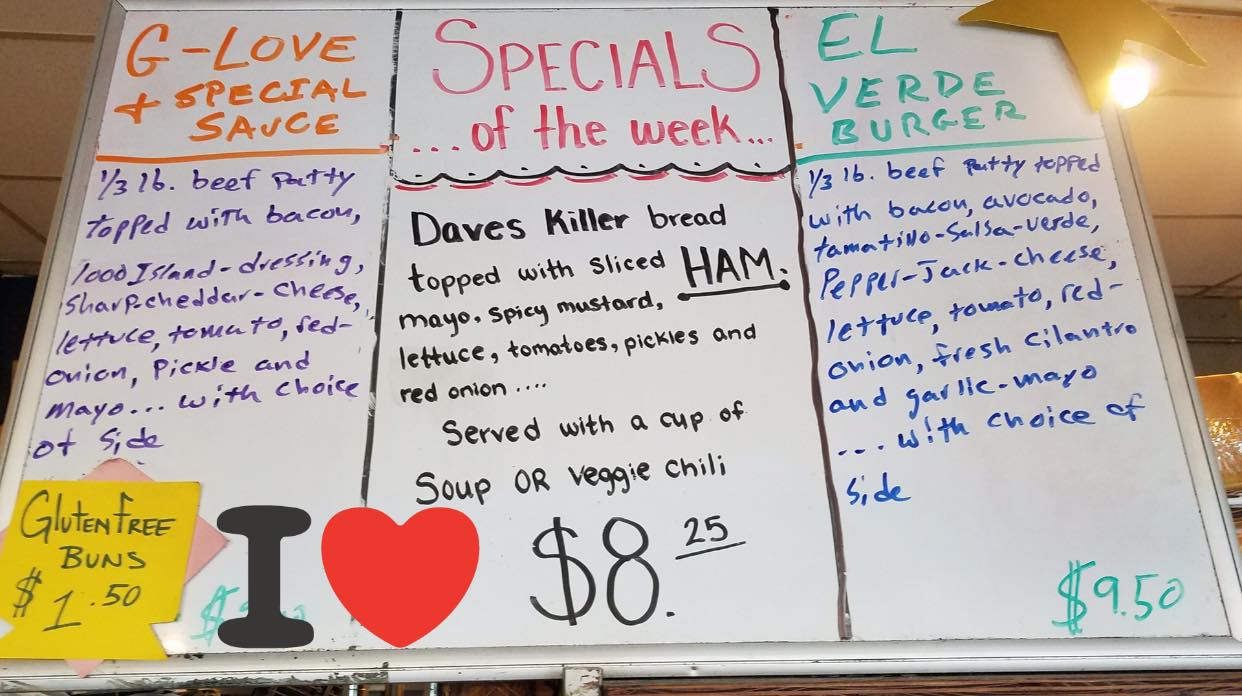 G-LOVE
+ SPECIAL
SAUCE
1/3 lb. beef Patty
topped with bacon,
1000 Island-dressing,
Sharp-cheddar-Cheese,
lettuce, tomato, red-
onion, Pickle and
mayo... with choice
of Side
Gluten free
BUNS
$1.50
I
SPECIALS
...of the week...
Daves Killer bread
topped with Sliced HAM.
mayo. spicy mustard,
lettuce, tomatoes, pickles and
red onion ....
Served with a cup of
Soup OR veggie chili
$8.25
EL
VERDE
BURGER
1/3 lb. beef Patty topped
with bacon, avocado,
tamatillo-Salsa-verde,
Pepper-Jack-cheese,
lettuce, tomato, red-
onion, fresh cilantro
and garlic-mayo
... with choice of
Side
$9.50